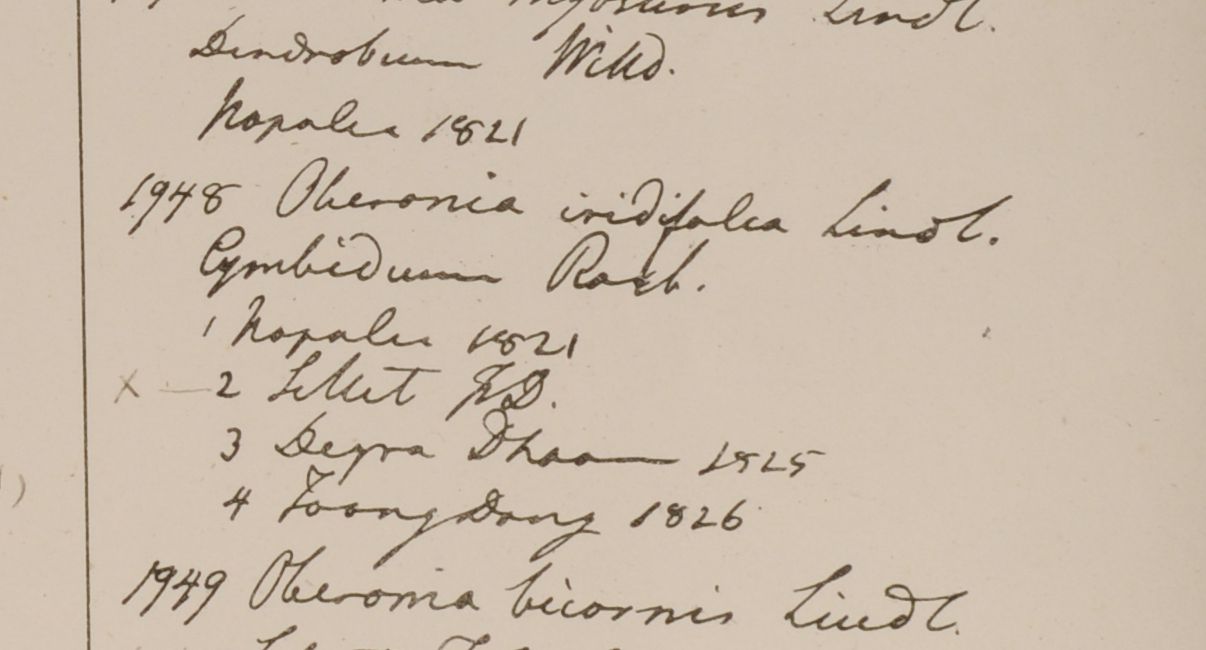 Lindl.
Dendrobium Willd.
Napalia 1821
1948 Oberonia iridifolia Lindl.
Cymbidium Roxb.
1 Napalia 1821
x — 2 Sillet F.D.
3 Deyra Dhoon 1825
4 Toong Dong 1826
1949 Oberonia bicornis Lindl.